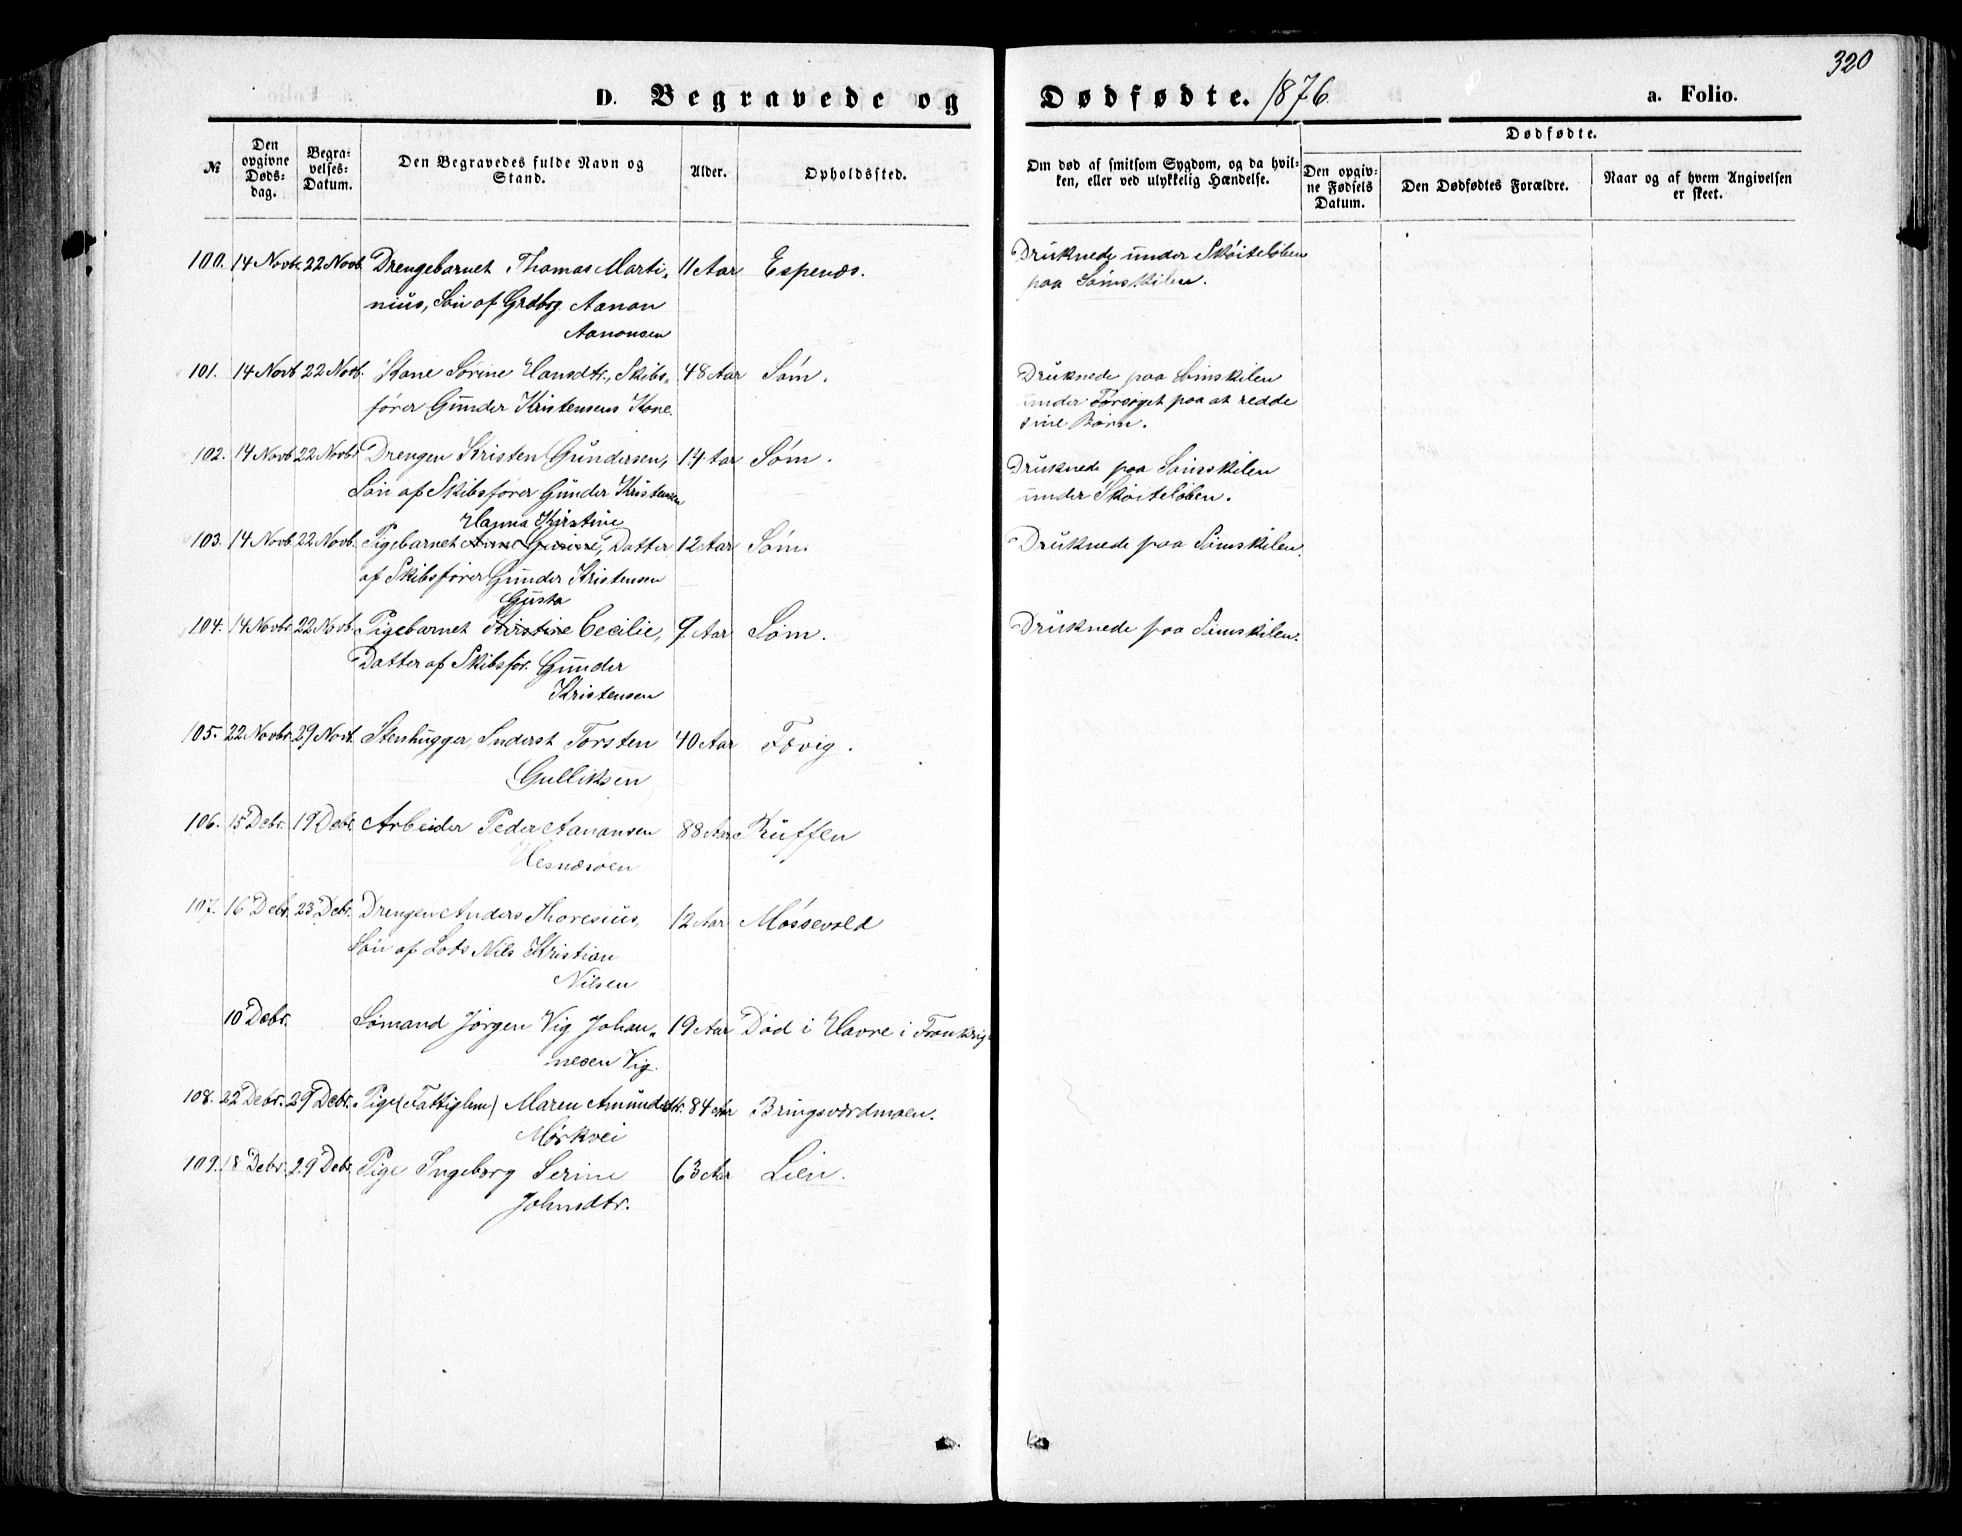 320
D. Begravede og Dødfødte. 1876. a. Folio.
№
Den opgivne Døds-dag.
Begra-velses-Datum.
Den Begravedes fulde Navn og Stand.
Alder.
Opholdssted.
Om død af smitsom Sygdom, og da hvil-ken, eller ved ulykkelig Hændelse.
Dødfødte.
Den opgiv-ne Fødsels Datum.
Den Dødfødtes Forældre.
Naar og af hvem Angivelsen er skeet.
100. 14 Novbr 22 Novb. Drengebarnet Thomas Marti- 11 Aar Espenæs. Druknede under Skøiteløben
nius, Søn af Grdbrg. Aanon paa Sømskilen.
Aanonsen
101. 14 Novb 22 Novb. Kone Sørine Hansdtr., Skibs- 48 Aar Søm. Druknede paa Sømskilen
fører Gunder Kristensens Kone. under Forsøget paa at redde
sine Børn.
102. 14 Novb 22 Novbr Drengen Kristen Gundersen, 14 Aar Søm. Druknede paa Sømskilen
Søn af Skibsfører Gunder Kristensen under Skøiteløben.
Hanna Kirstine
103. 14 Novb 22 Novb. Pigebarnet Datter 12 Aar Søm. Druknede paa Sømskilen.
af Skibsfører Gunder Kristensen
Gusta
104. 14 Novbr 22 Novb. Pigebarnet Kirstine Cecilie, 9 Aar Søm. Druknede paa Sømskilen.
Datter af Skibsfør. Gunder
Kristensen
105. 22 Novbr. 29 Novb. Stenhugger, Inderst Torsten 40 Aar Fevig.
Gulliksen
106. 15 Debr. 19 Debr. Arbeider Peder Aanonsen 88 Aar Ruffen
Hesnesøen
107. 16 Debr. 23 Debr. Drengen Anders Thoresius, 12 Aar Møssevold
Søn af Lods Nils Kristian
Nilsen
10 Debr. Sømand Jørgen Vig Johan- 19 Aar Død i Havre i Frankrig
nesen Vig.
108. 22 Debr. 29 Debr. Pige (Fattiglem) Maren Amundsdtr. 84 Aar Bringsværdmoen.
Mørkvei
109. 18 Debr. 29 Debr. Pige Ingeborg Serine 63 Aar Lien.
Johnsdtr.